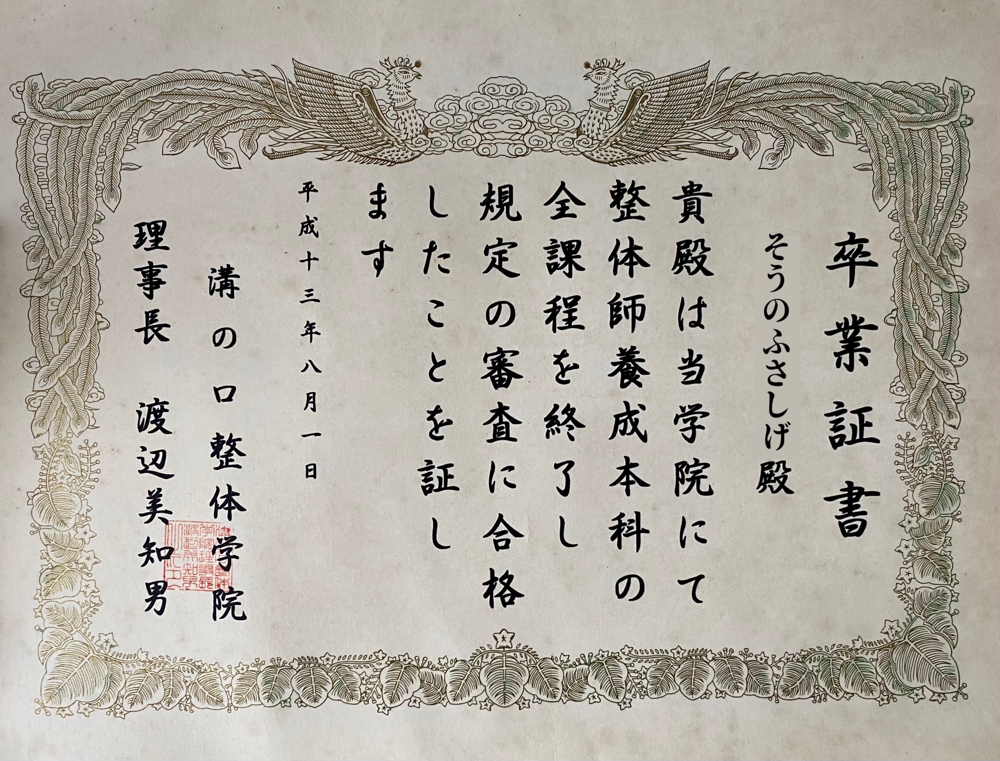 卒業証書
そうのふさしげ殿
貴殿は当学院にて
整体師養成本科の
全課程を終了し
規定の審査に合格
したことを証し
ます
平成十三年八月一日
溝の口整体学院
理事長 渡辺美知男